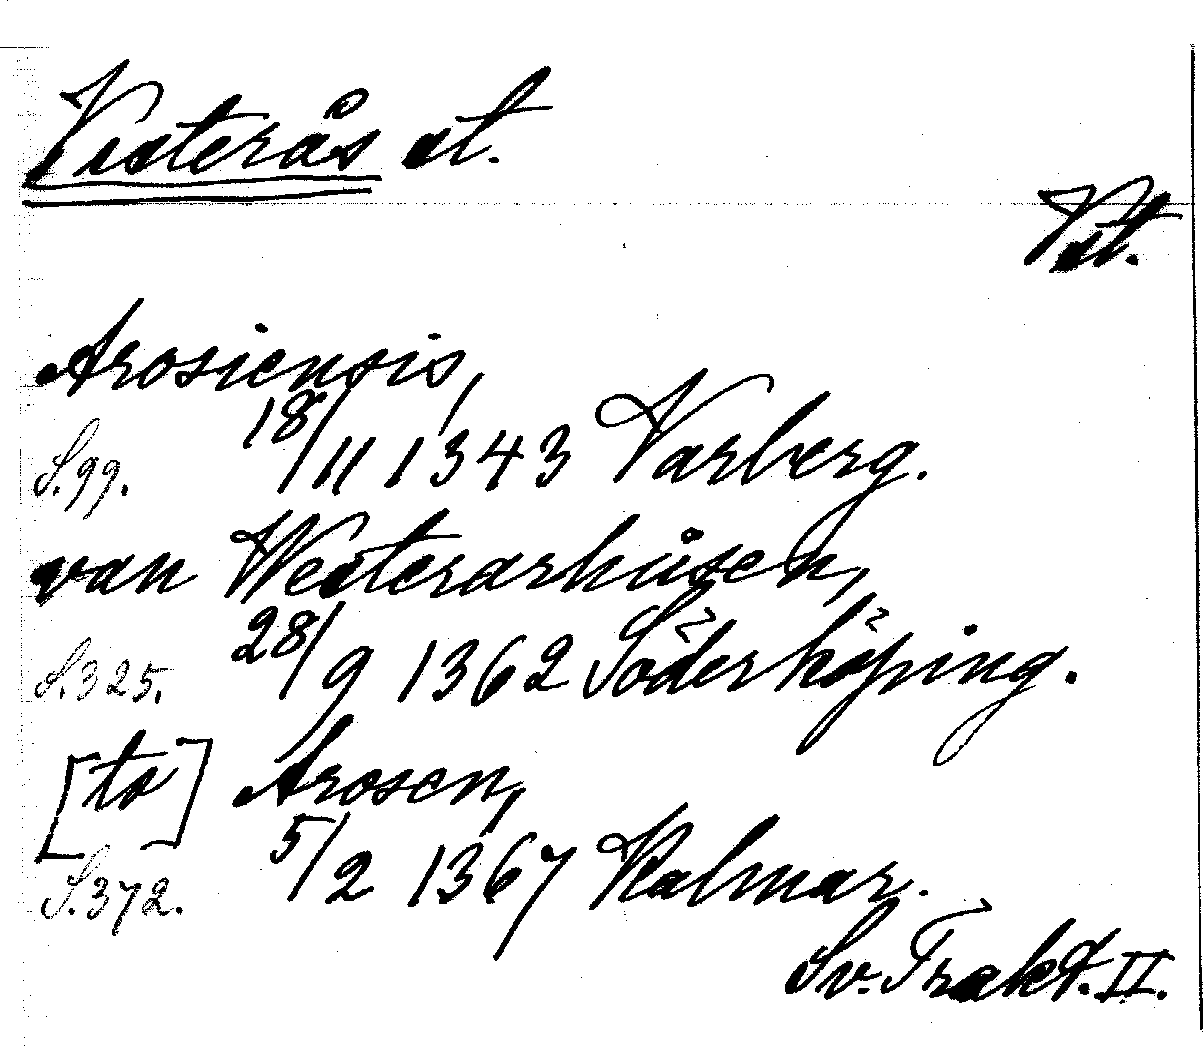 Västerås st.
Vst.
Arosiensis,
S. 99. 18/11 1343 Varberg.
van Westerarhůsen,
S. 325. 28/9 1362 Söderköping.
[to] Arosen,
S. 372. 5/2 1367 Kalmar.
Sv. Trakt. II.